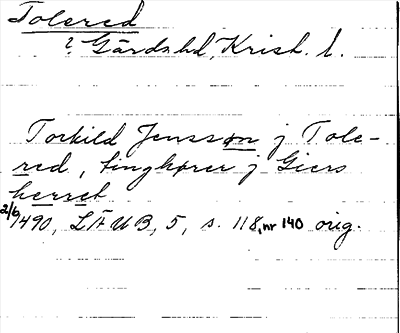 Tolered
? Gärds hd, Krist. l.
Torkild Jensson j Tole-
red, tinghører j Geers
herret
2/6 1490, LÄUB, 5, s. 118, nr 140 orig.